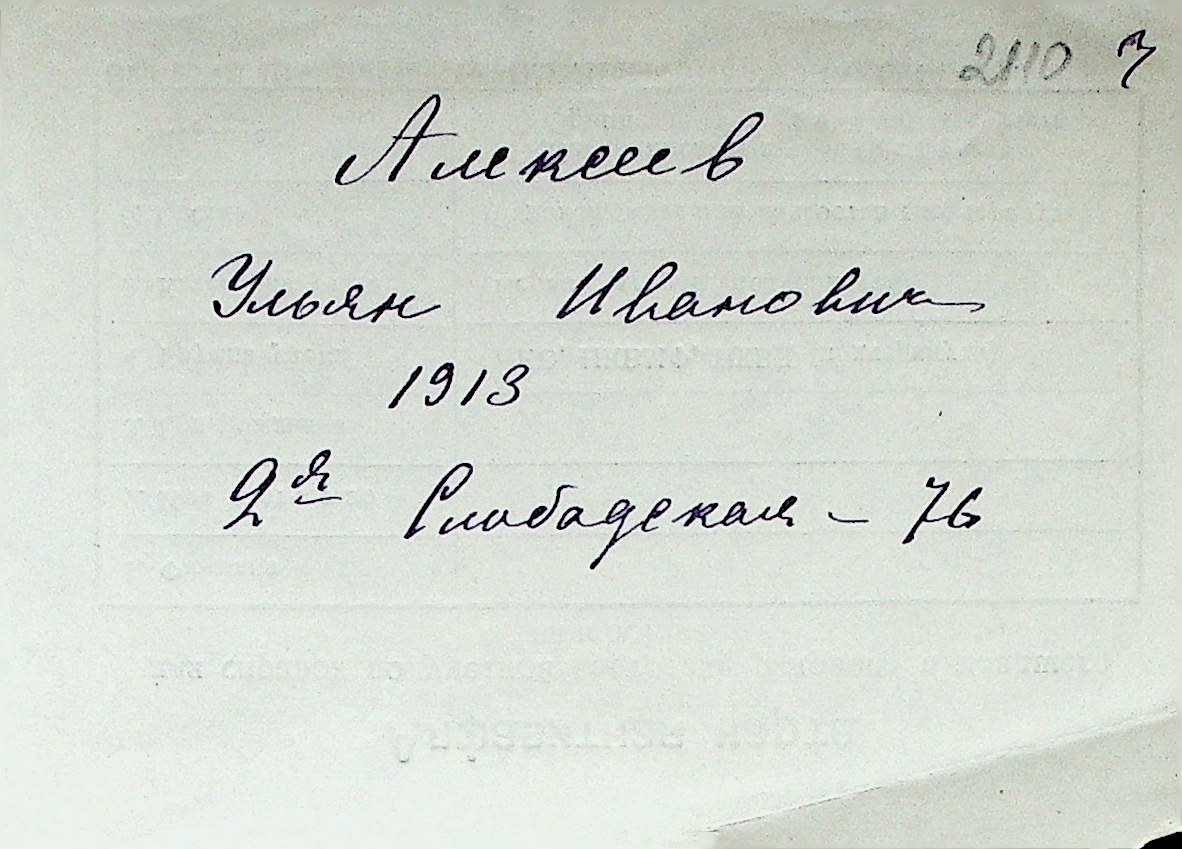 2110 3
Алексеев
Ульян Иванович
1913
2я Слободская - 76